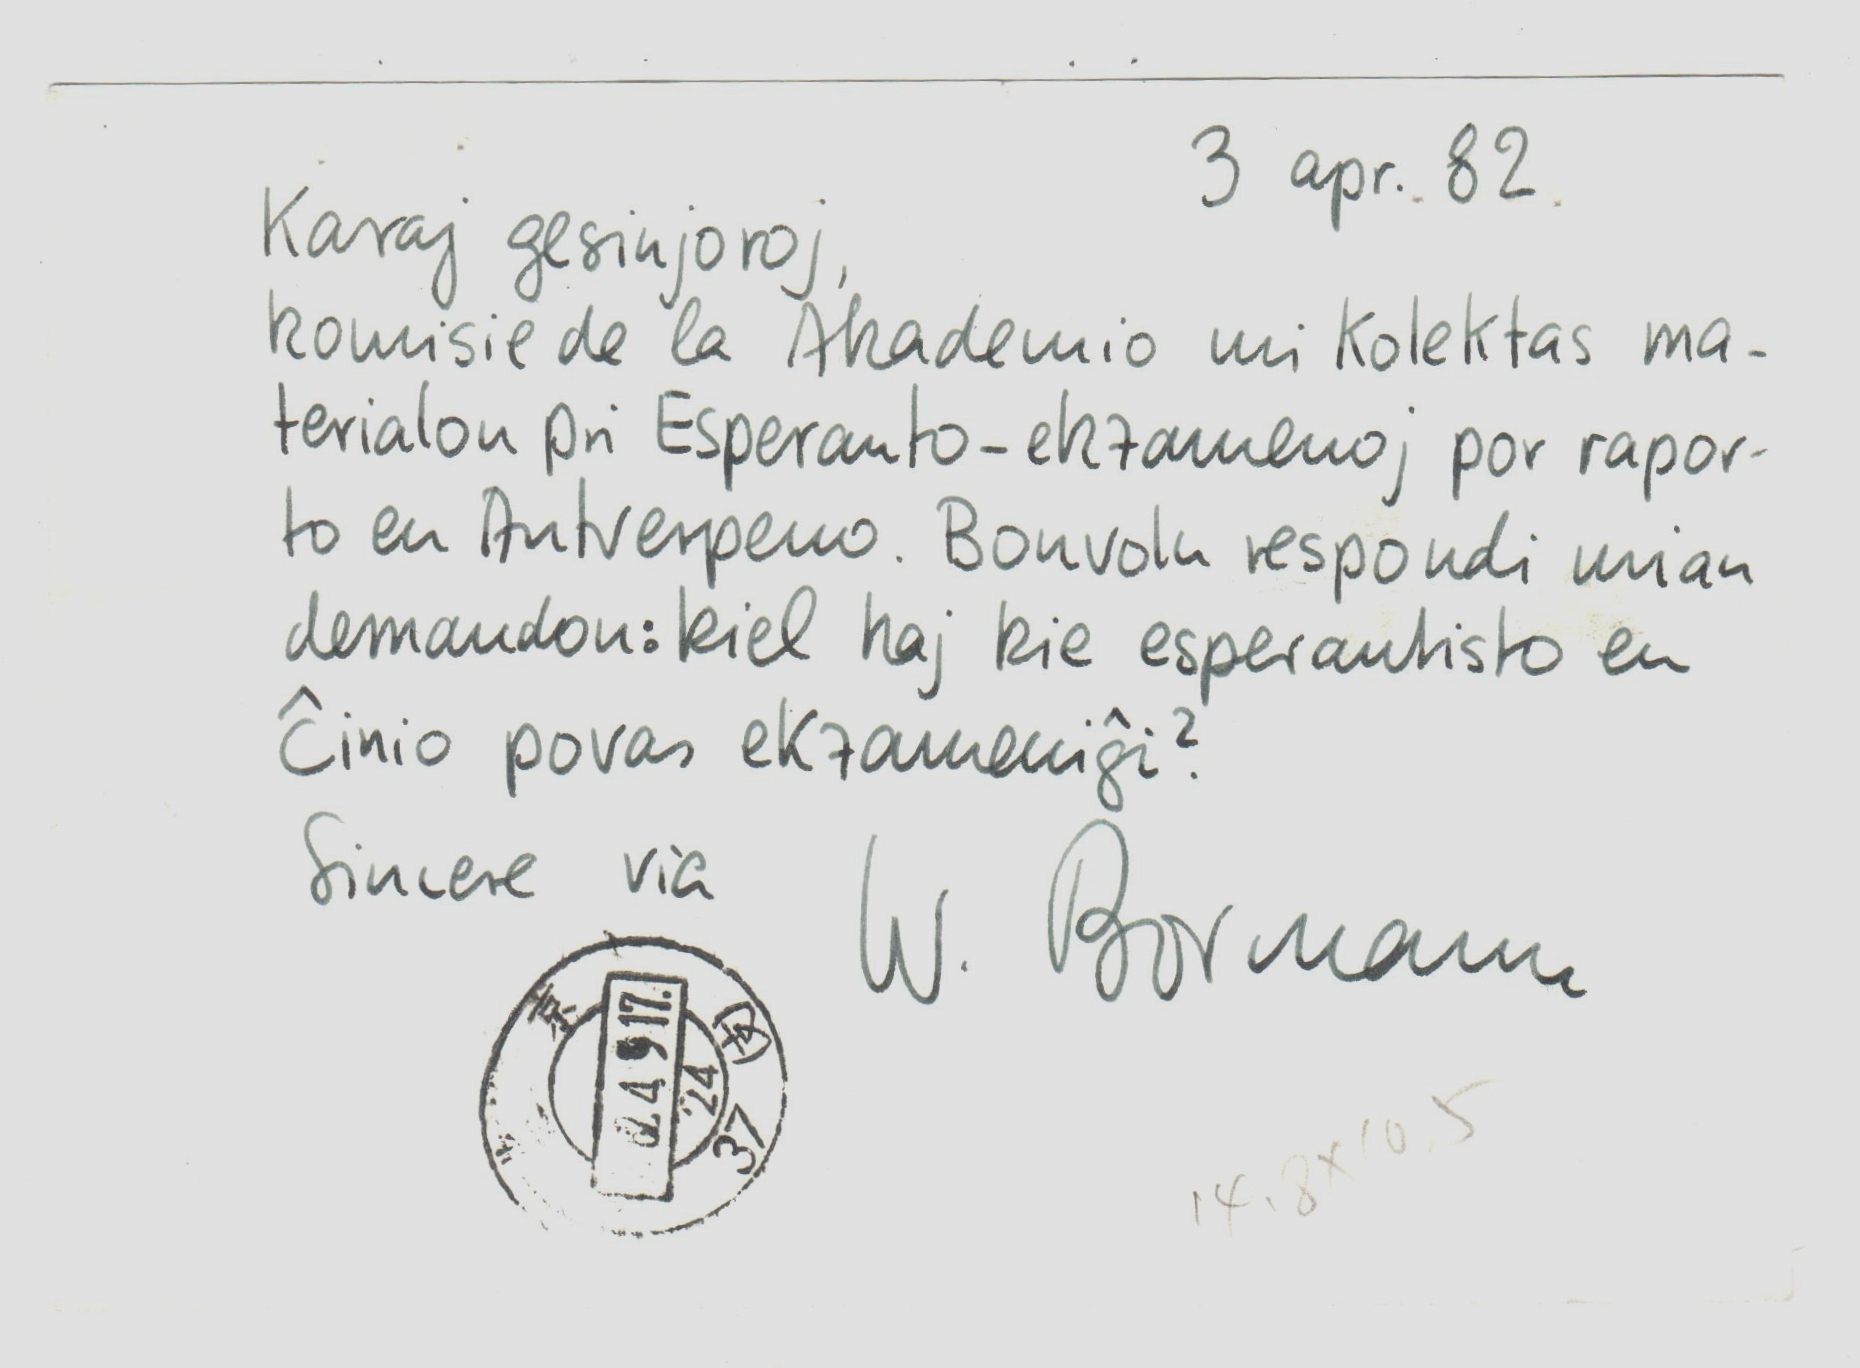 3 apr. 82.
Karaj gesinjoroj,
komisie de la Akademio mi kolektas ma-
terialon pri Esperanto-ekzamenoj por rapor-
to en Antverpeno. Bonvolu respondi mian
demandon: kiel kaj kie esperantisto en
Ĉinio povas ekzameniĝi?
Sincere via
W. Bormann
京
24
37
14.8×10.5